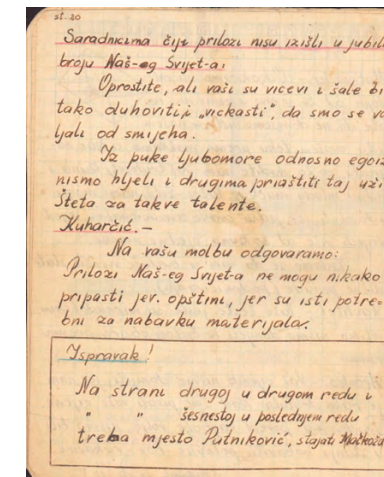 st. 20
Saradnicima čiji prilozi nisu izišli u jubil
broju Naš-eg Svijet-a:
Oprostite, ali vaši su vicevi i šale bi
tako duhoviti i „vickasti", da smo se va
ljali od smijeha.
Iz puke ljubomore odnosno egoiz
nismo htjeli i drugima priaštiti taj uži
Šteta za takve talente.
Kuharčić. —
Na vašu molbu odgovaramo:
Prilozi Naš-eg Svijet-a ne mogu nikako
pripasti jev. opštini, jer su isti potre-
bni za nabavku materijala.
Ispravak!
Na strani drugoj u drugom redu i
" " šesnestoj u poslednjem redu
treba mjesto Putniković, stajati